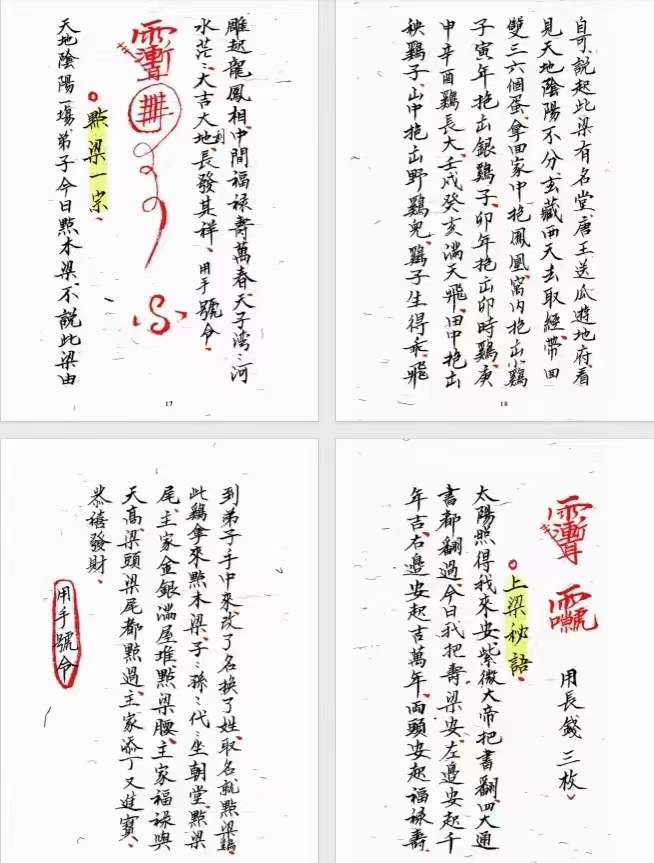 雕起龍鳳相、中間福祿壽萬春、天子灣〻河
水茫〻、大吉大地利、長發其祥、用手號令、
點梁一宗、
天地陰陽一場、弟子今日點木梁、不說此梁由
17
自可、說起此梁有名堂、唐王送瓜遊地府、看
見天地陰陽不分、玄藏西天去取經、帶回
雙三六個蛋、拿回家中抱、鳳凰窩內抱出小鷄
子、寅年抱出銀鷄子、卯年抱出卯時鷄、庚
申辛酉鷄長大、壬戌癸亥滿天飛、田中抱出
秧鷄子、山中抱出野鷄兒、鷄子生得乖、飛
18
到弟子手中來、改了名換了姓、取名就點梁鷄、
此鷄拿來點木梁、子〻孫〻代〻坐朝堂、點梁
尾、主家金銀滿屋堆、點梁腰、主家福祿與
天高、梁頭梁尾都點過、主家添丁又進寶、
恭禧發財、
用手號令
用長錢三枚、
上梁秘語、
太陽照得我來安、紫微大帝把書翻、四大通
書都翻過、今日我把壽梁安、左邊安起千
年吉、右邊安起吉萬年、兩頭安起福祿壽、